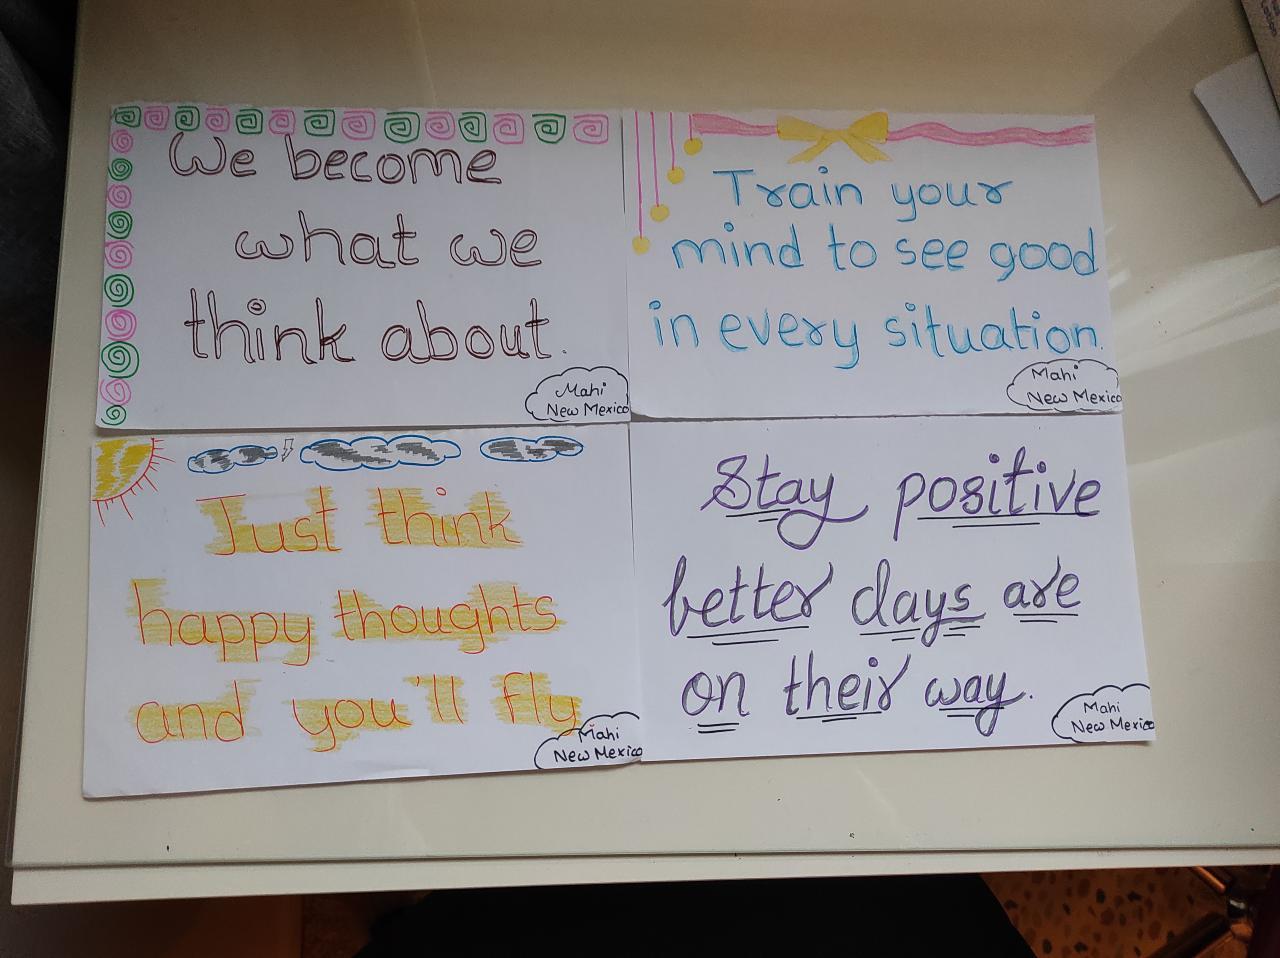 We become
what we
think about.
Mahi
New Mexico
Train your
mind to see good
in every situation.
Mahi
New Mexico
Just think
happy thoughts
and you'll fly
Mahi
New Mexico
Stay positive
better days are
on their way.
Mahi
New Mexico